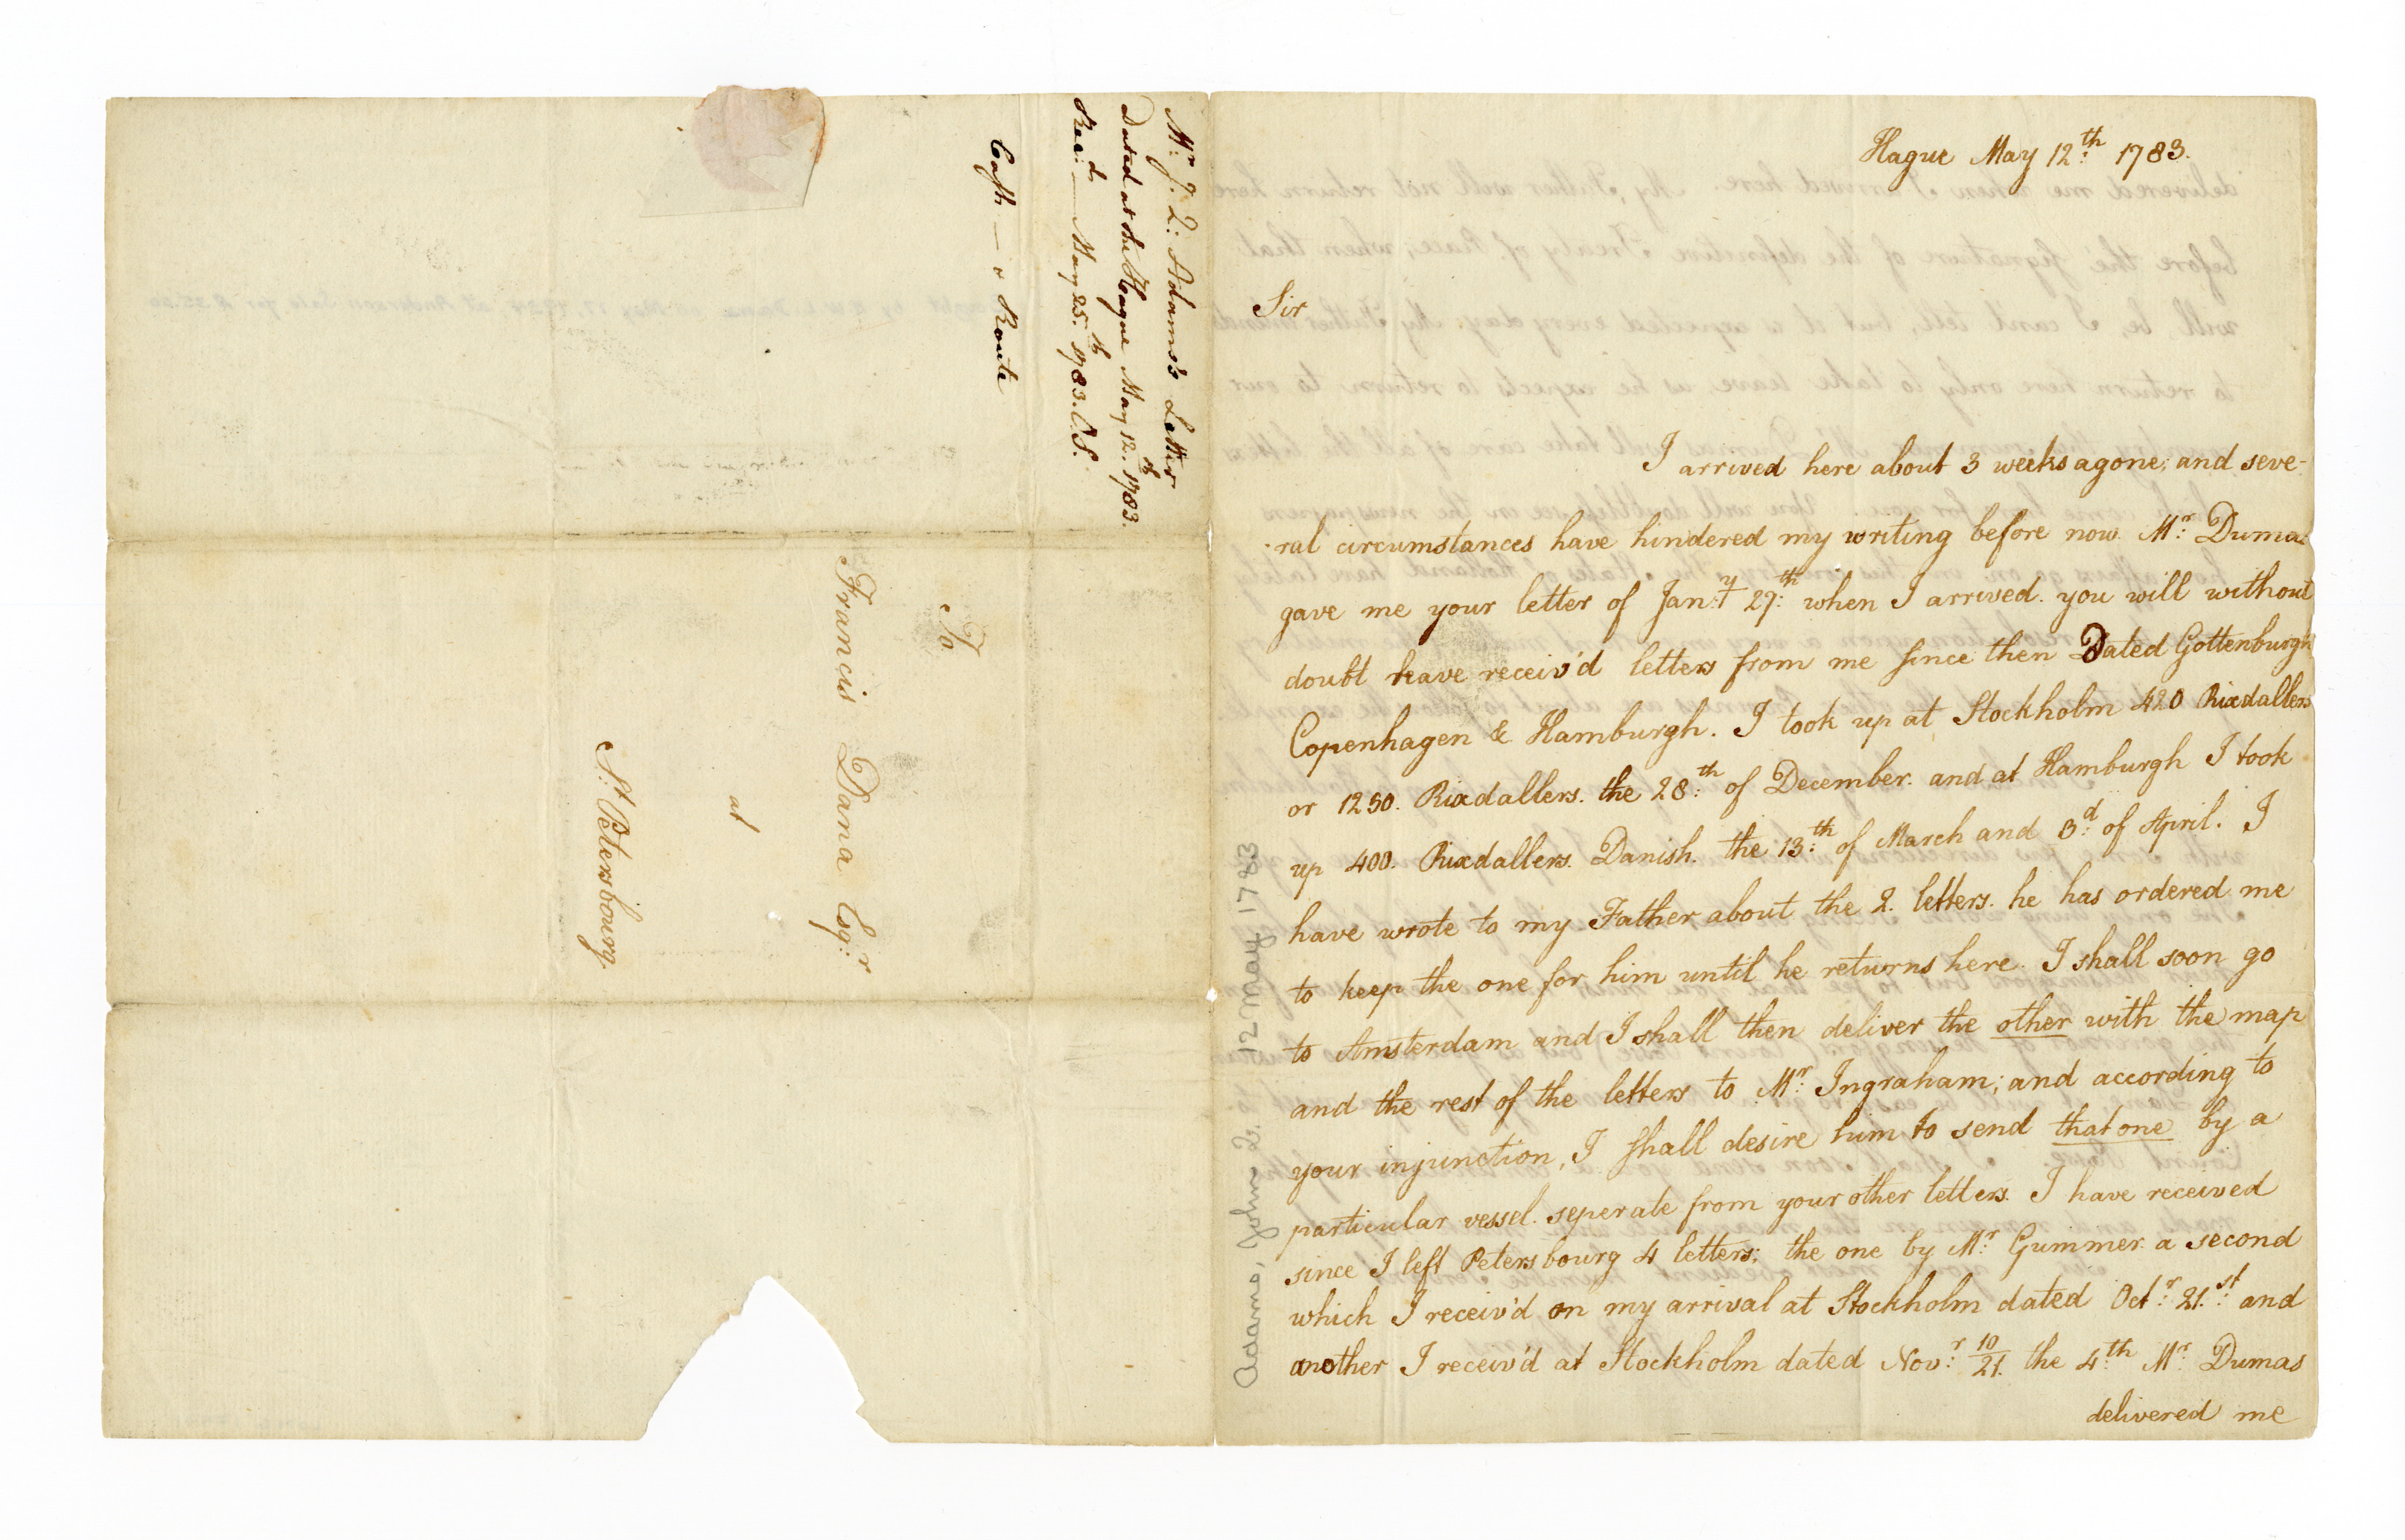 Mr: J. Q: Adams's Letter
Dated at the Hague May 12.th 1783.
Recd: — May 25.th 1783. O.S.
Cash — & Route
To
Francis Dana Esq:r
at
St: Petersbourg.
Hague May 12:th 1783.
Sir
I arrived here about 3 weeks agone; and seve-
-ral circumstances have hindered my writing before now. Mr: Dumas
gave me your letter of Jan:y 27:th when I arrived. you will without
doubt have receiv'd letters from me since then Dated Gottenburgh
Copenhagen & Hamburgh. I took up at Stockholm 420 Rixdallers
or 1250. Rixdallers. the 28:th of December. and at Hamburgh I took
up 400. Rixdallers. Danish. the 13:th of March and 3:d of April. I
have wrote to my Father about the 2. letters. he has ordered me
to keep the one for him until he returns here. I shall soon go
to Amsterdam and I shall then deliver the other with the map
and the rest of the letters to Mr: Ingraham; and according to
your injunction, I shall desire him to send that one by a
particular vessel. seperate from your other letters. I have received
since I left Petersbourg 4 letters; the one by Mr: Gummer. a second
which I receiv'd on my arrival at Stockholm dated Oct:r 21.st: and
another I receiv'd at Stockholm dated Nov:r 10/21. the 4:th Mr: Dumas
delivered me
Adams, John Q. 12 May 1783